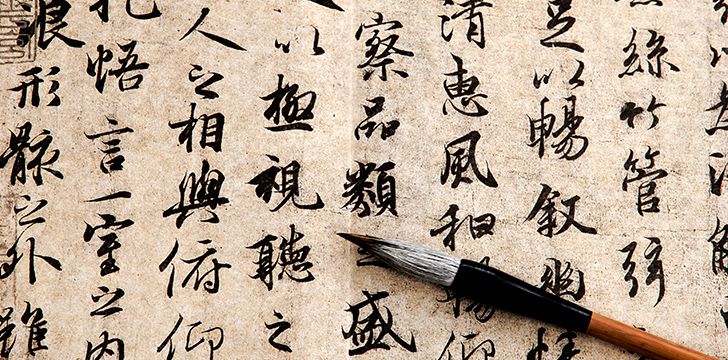 絲竹管弦
足以暢敘幽情
清惠風和暢仰
察品類之盛
以極視聽之
人之相與俯仰
悟言一室之內
浪形骸之外雖